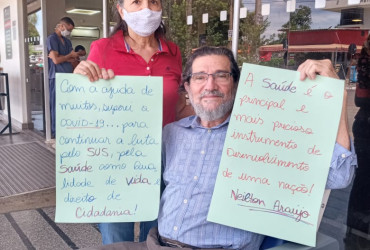 Com a ajuda de
muitos, superei a
COVID-19... para
continuar a luta
pelo SUS, pela
Saúde como qua
lidade de vida e
direito de
Cidadania!
A Saúde é o
principal e
mais precioso
instrumento de
Desenvolvimento
de uma nação!
Neilson Araújo